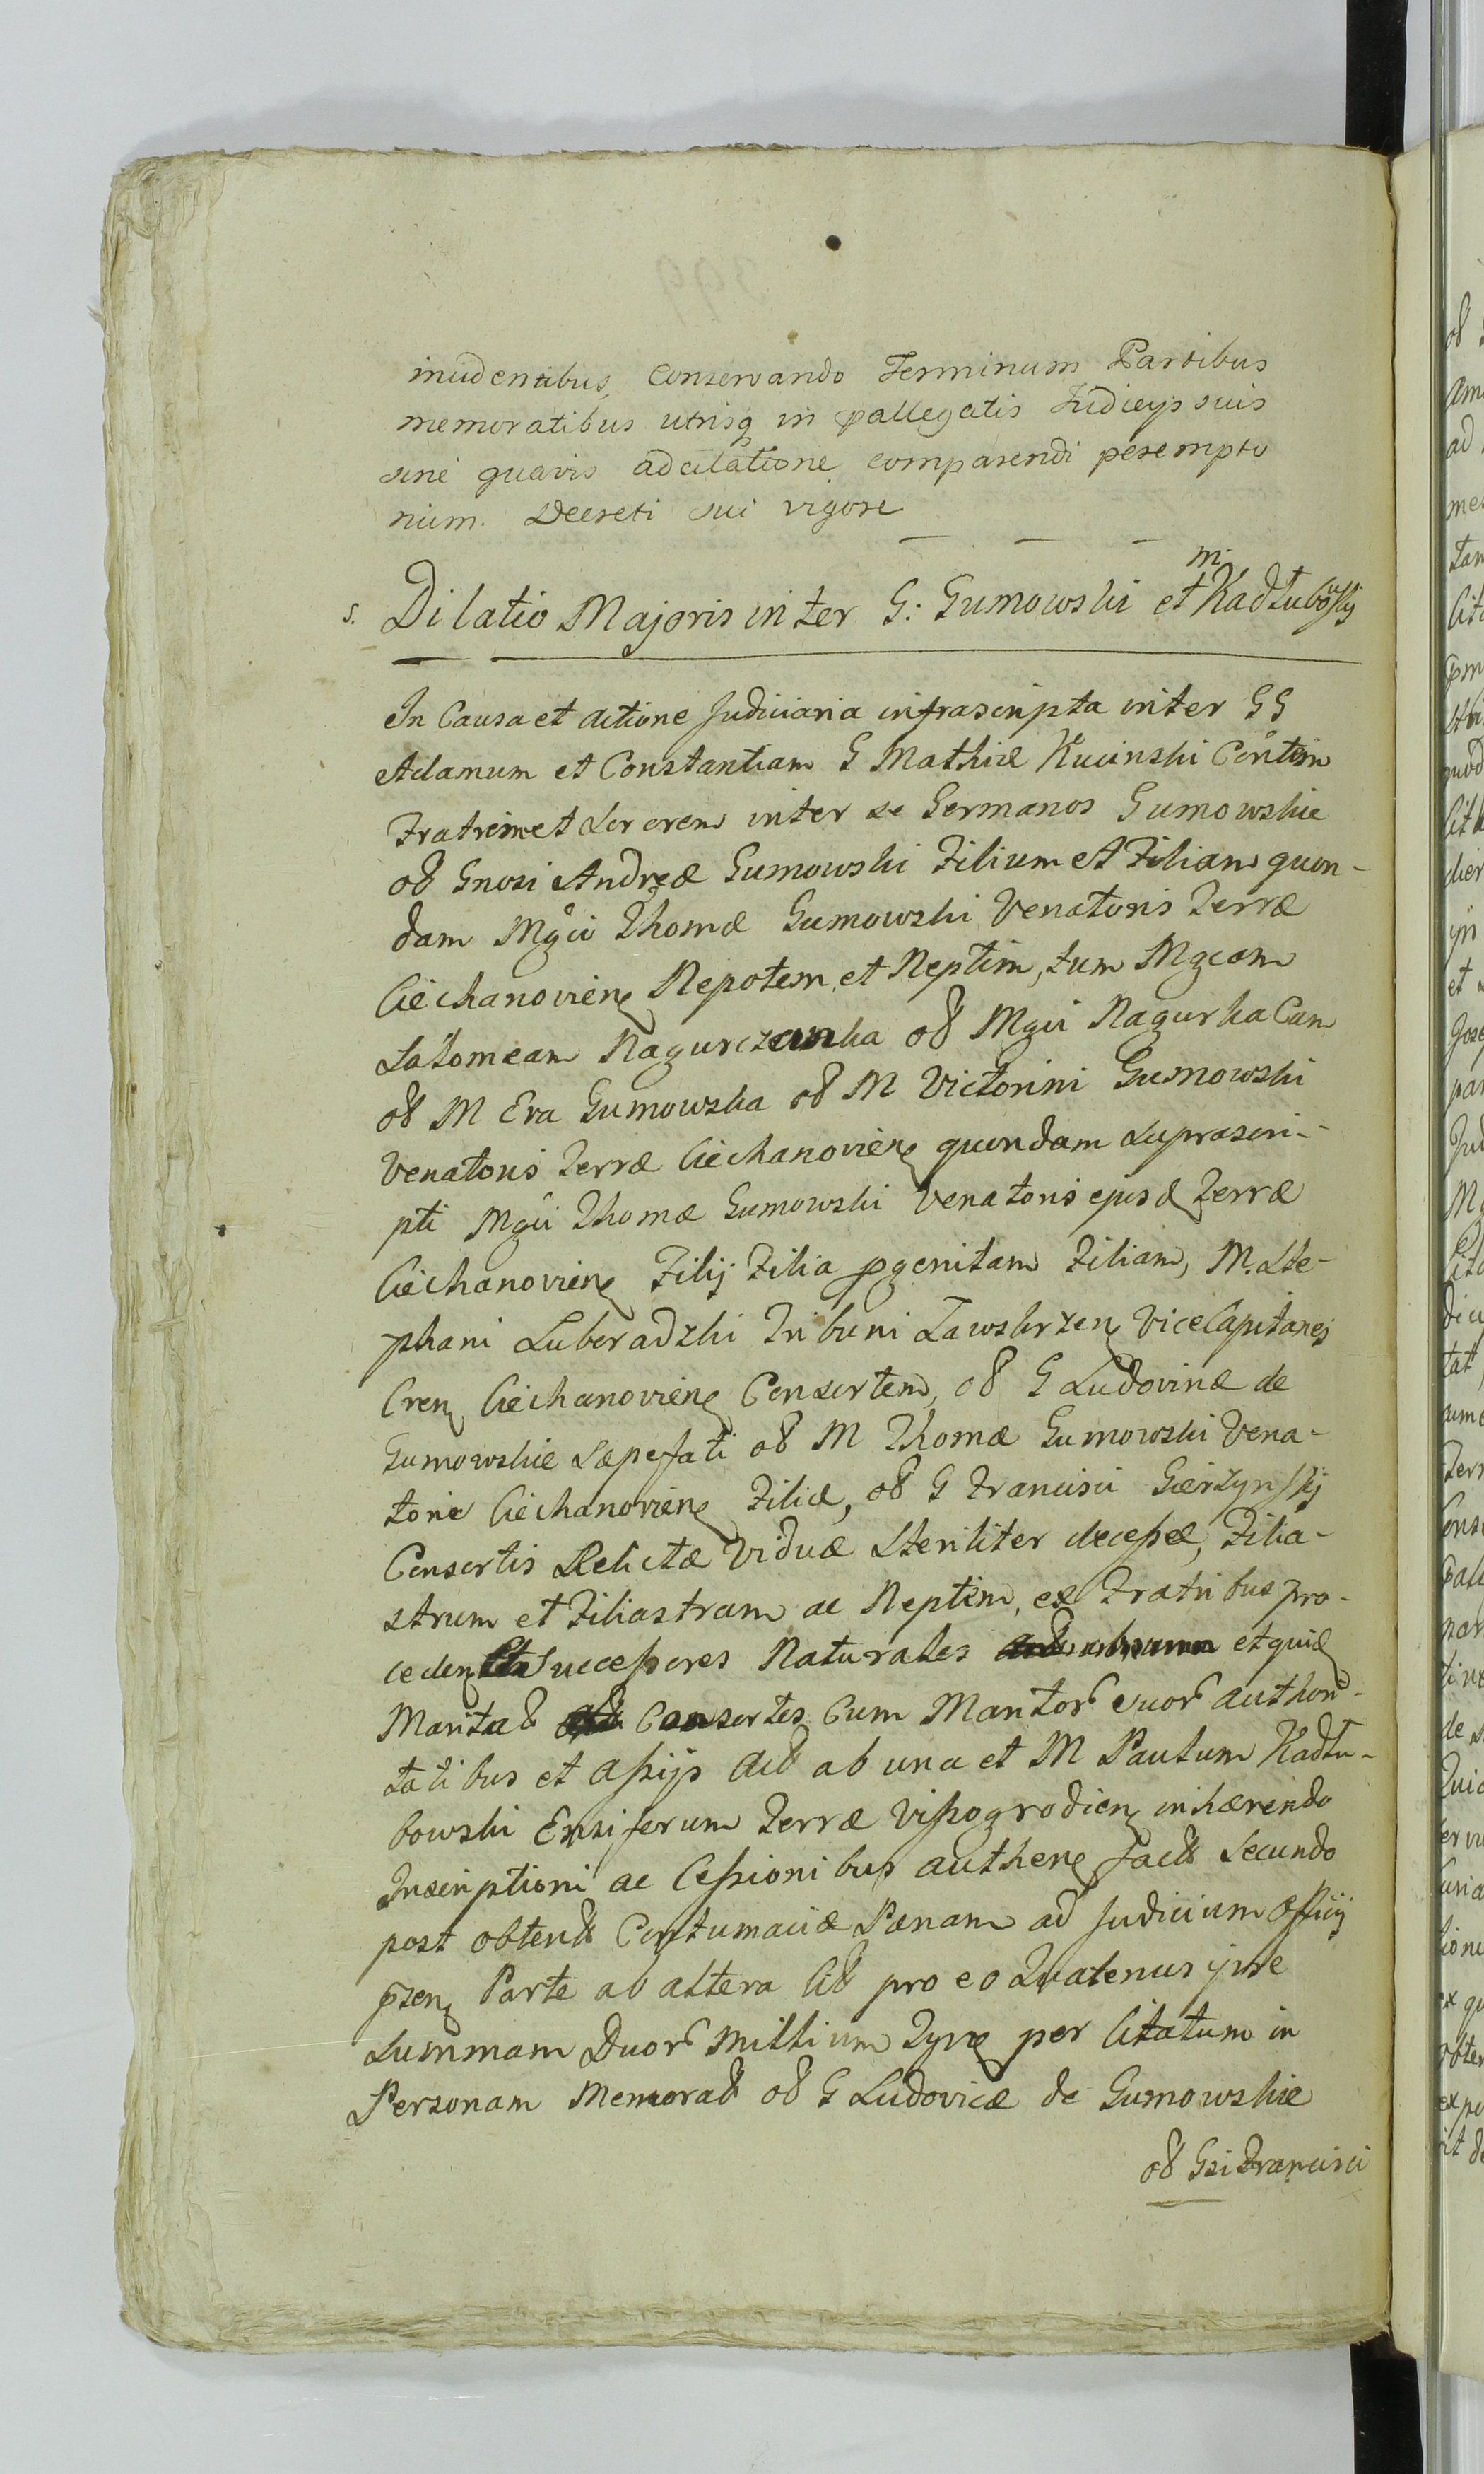 incidentibus, conservando Terminum Partibus
memoratibus utrisq in pallegatis Judicys suis
sine quavis adcitatione comparendi perempto
rium. Decreti sui vigore
s. Dilatio Majoris inter G: Gumowski et M. Kadłubowskij
In Causa et actione Judiciaria infrascripta inter GG
Adamum et Constantiam G Mathiæ Kucinski Contem
Fratrem et Sororem inter se Germanos Gumowskie
ol Gnosi Andreæ Gumowski Filium et Filiam quon-
dam Mgci Thomæ Gumowski Venatoris Terræ
Ciechanovien Nepotem et Neptim, tum Mgcam
Salomeam Nagurczanka ol Mgci Nagurka Cum
ol M Eva Gumowska ol M Victorini Gumowski
Venatoris Terræ Ciechanovien quondam Suprascri-
pti Mgci Thomæ Gumowski Venatoris ejusd Terræ
Ciechanovien Filij Filia pgenitam Filiam, M. Ste-
phani Luberadzki Tribuni Zawskrzen ViceCapitanej
Cren Ciechanovien Consortem, ol G Ludovicæ de
Gumowskie Sæpefati ol M Thomæ Gumowski Vena-
toris Ciechanovien Filiæ, ol G Francisci Gierzynskij
Consortis Relictæ Viduæ Steriliter decessæ, Filia-
strum et Filiastram ac Neptim, ex Fratribus pro-
ceden Successores Naturales et quid
Maritat Consortes Cum Maritor suor authori-
tatibus et assijs Act ab una et M Paulum Kadłu-
bowski Ensiferum Terræ Vissogrodien inhærendo
Inscriptioni ac Cessionibus authen fact Secundo
post obtent Contumaciæ Pœnam ad Judicium Officij
pzen Parte ab altera Cit pro eo Quatenus ipse
Summam Duor Millium Tynf per Citatum in
Personam Memorat ol G Ludovicæ de Gumowskie
ol Gsi Francisci